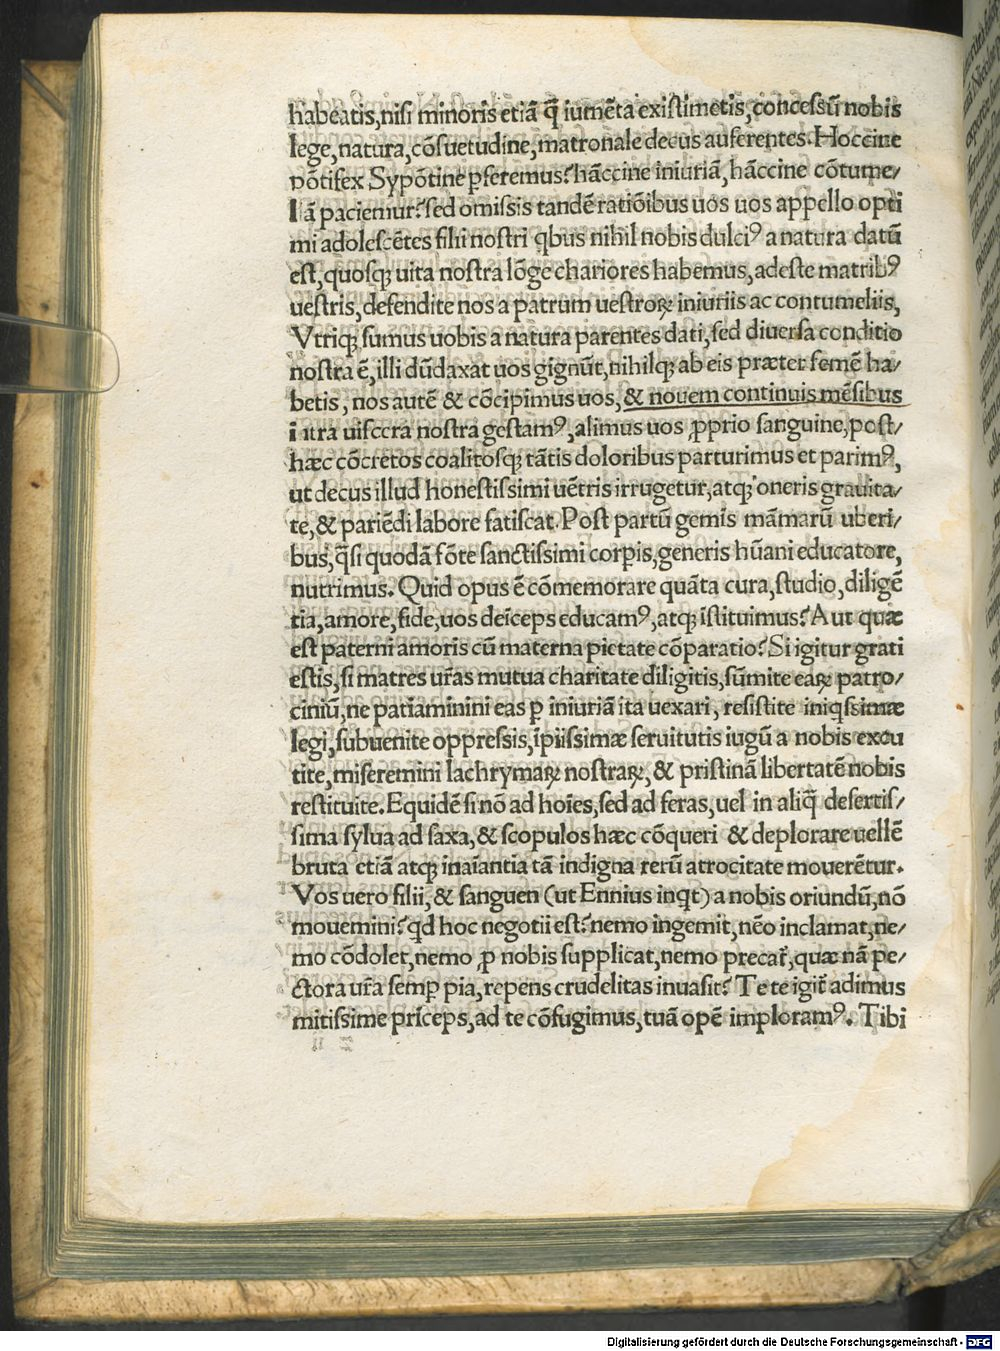 habeatis,nisi minoris etiā q̄ iumēta existimetis,concessū nobis
lege,natura,cōsuetudine,matronale decus auferentes.Hoccine
pōtifex Sypōtine pferemus?hāccine iniuriā,hāccine cōtume/
lā paciemur?sed omissis tandē ratiōibus uos uos appello opti
mi adolescētes filii nostri qbus nihil nobis dulciꝰ a natura datū
est,quosqꝫ uita nostra lōge chariores habemus,adeste matribꝰ
uestris,defendite nos a patrum uestroꝝ iniuriis ac contumeliis,
Vtriqꝫ sumus uobis a natura parentes dati,sed diuersa conditio
nostra ē,illi dūdaxat uos gignūt,nihilqꝫ ab eis præter semē ha/
betis, nos autē & cōcipimus uos,& nouem continuis mēsibus
i itra uiscera nostra gestamꝰ,alimus uos ꝓprio sanguine,post/
hæc cōcretos coalitosqꝫ tātis doloribus parturimus et parimꝰ,
ut decus illud honestissimi uētris irrugetur,atqꝫ oneris grauita/
te,& pariēdi labore fatiscat.Post partū gemis māmarū uberi/
bus,q̄si quodā fōte sanctissimi corpis,generis hūani educatore,
nutrimus.Quid opus ē cōmemorare quāta cura,studio,diligē
tia,amore,fide,uos deīceps educamꝰ,atqꝫ īstituimus?Aut quæ
est paterni amoris cū materna pietate cōparatio?Si igitur grati
estis,si matres ur̄as mutua charitate diligitis,sūmite eaꝝ patro/
ciniū,ne patiaminini eas ꝑ iniuriā ita uexari, resistite iniqssimæ
legi,subuenite oppressis,īpiissimæ seruitutis iugū a nobis excu
tite,miseremini lachrymaꝝ nostraꝝ,& pristinā libertatē nobis
restituite.Equidē si nō ad hoīes,sed ad feras,uel in aliq̄ desertis/
sima sylua ad saxa,& scopulos hæc cōqueri & deplorare uellē
bruta etiā atqꝫ inaīantia tā indigna rerū atrocitate mouerētur.
Vos uero filii,& sanguen (ut Ennius inqt) a nobis oriundū,nō
mouemini?qd hoc negotii est?nemo ingemit,nēo inclamat,ne/
mo cōdolet,nemo ꝓ nobis supplicat,nemo precat̄,quæ nā pe/
ctora ur̄a semꝑ pia,repens crudelitas inuasit?Te te igit̄ adimus
mitissime prīceps,ad te cōfugimus,tuā opē imploramꝰ. Tibi
Digitalisierung gefördert durch die Deutsche Forschungsgemeinschaft - DFG